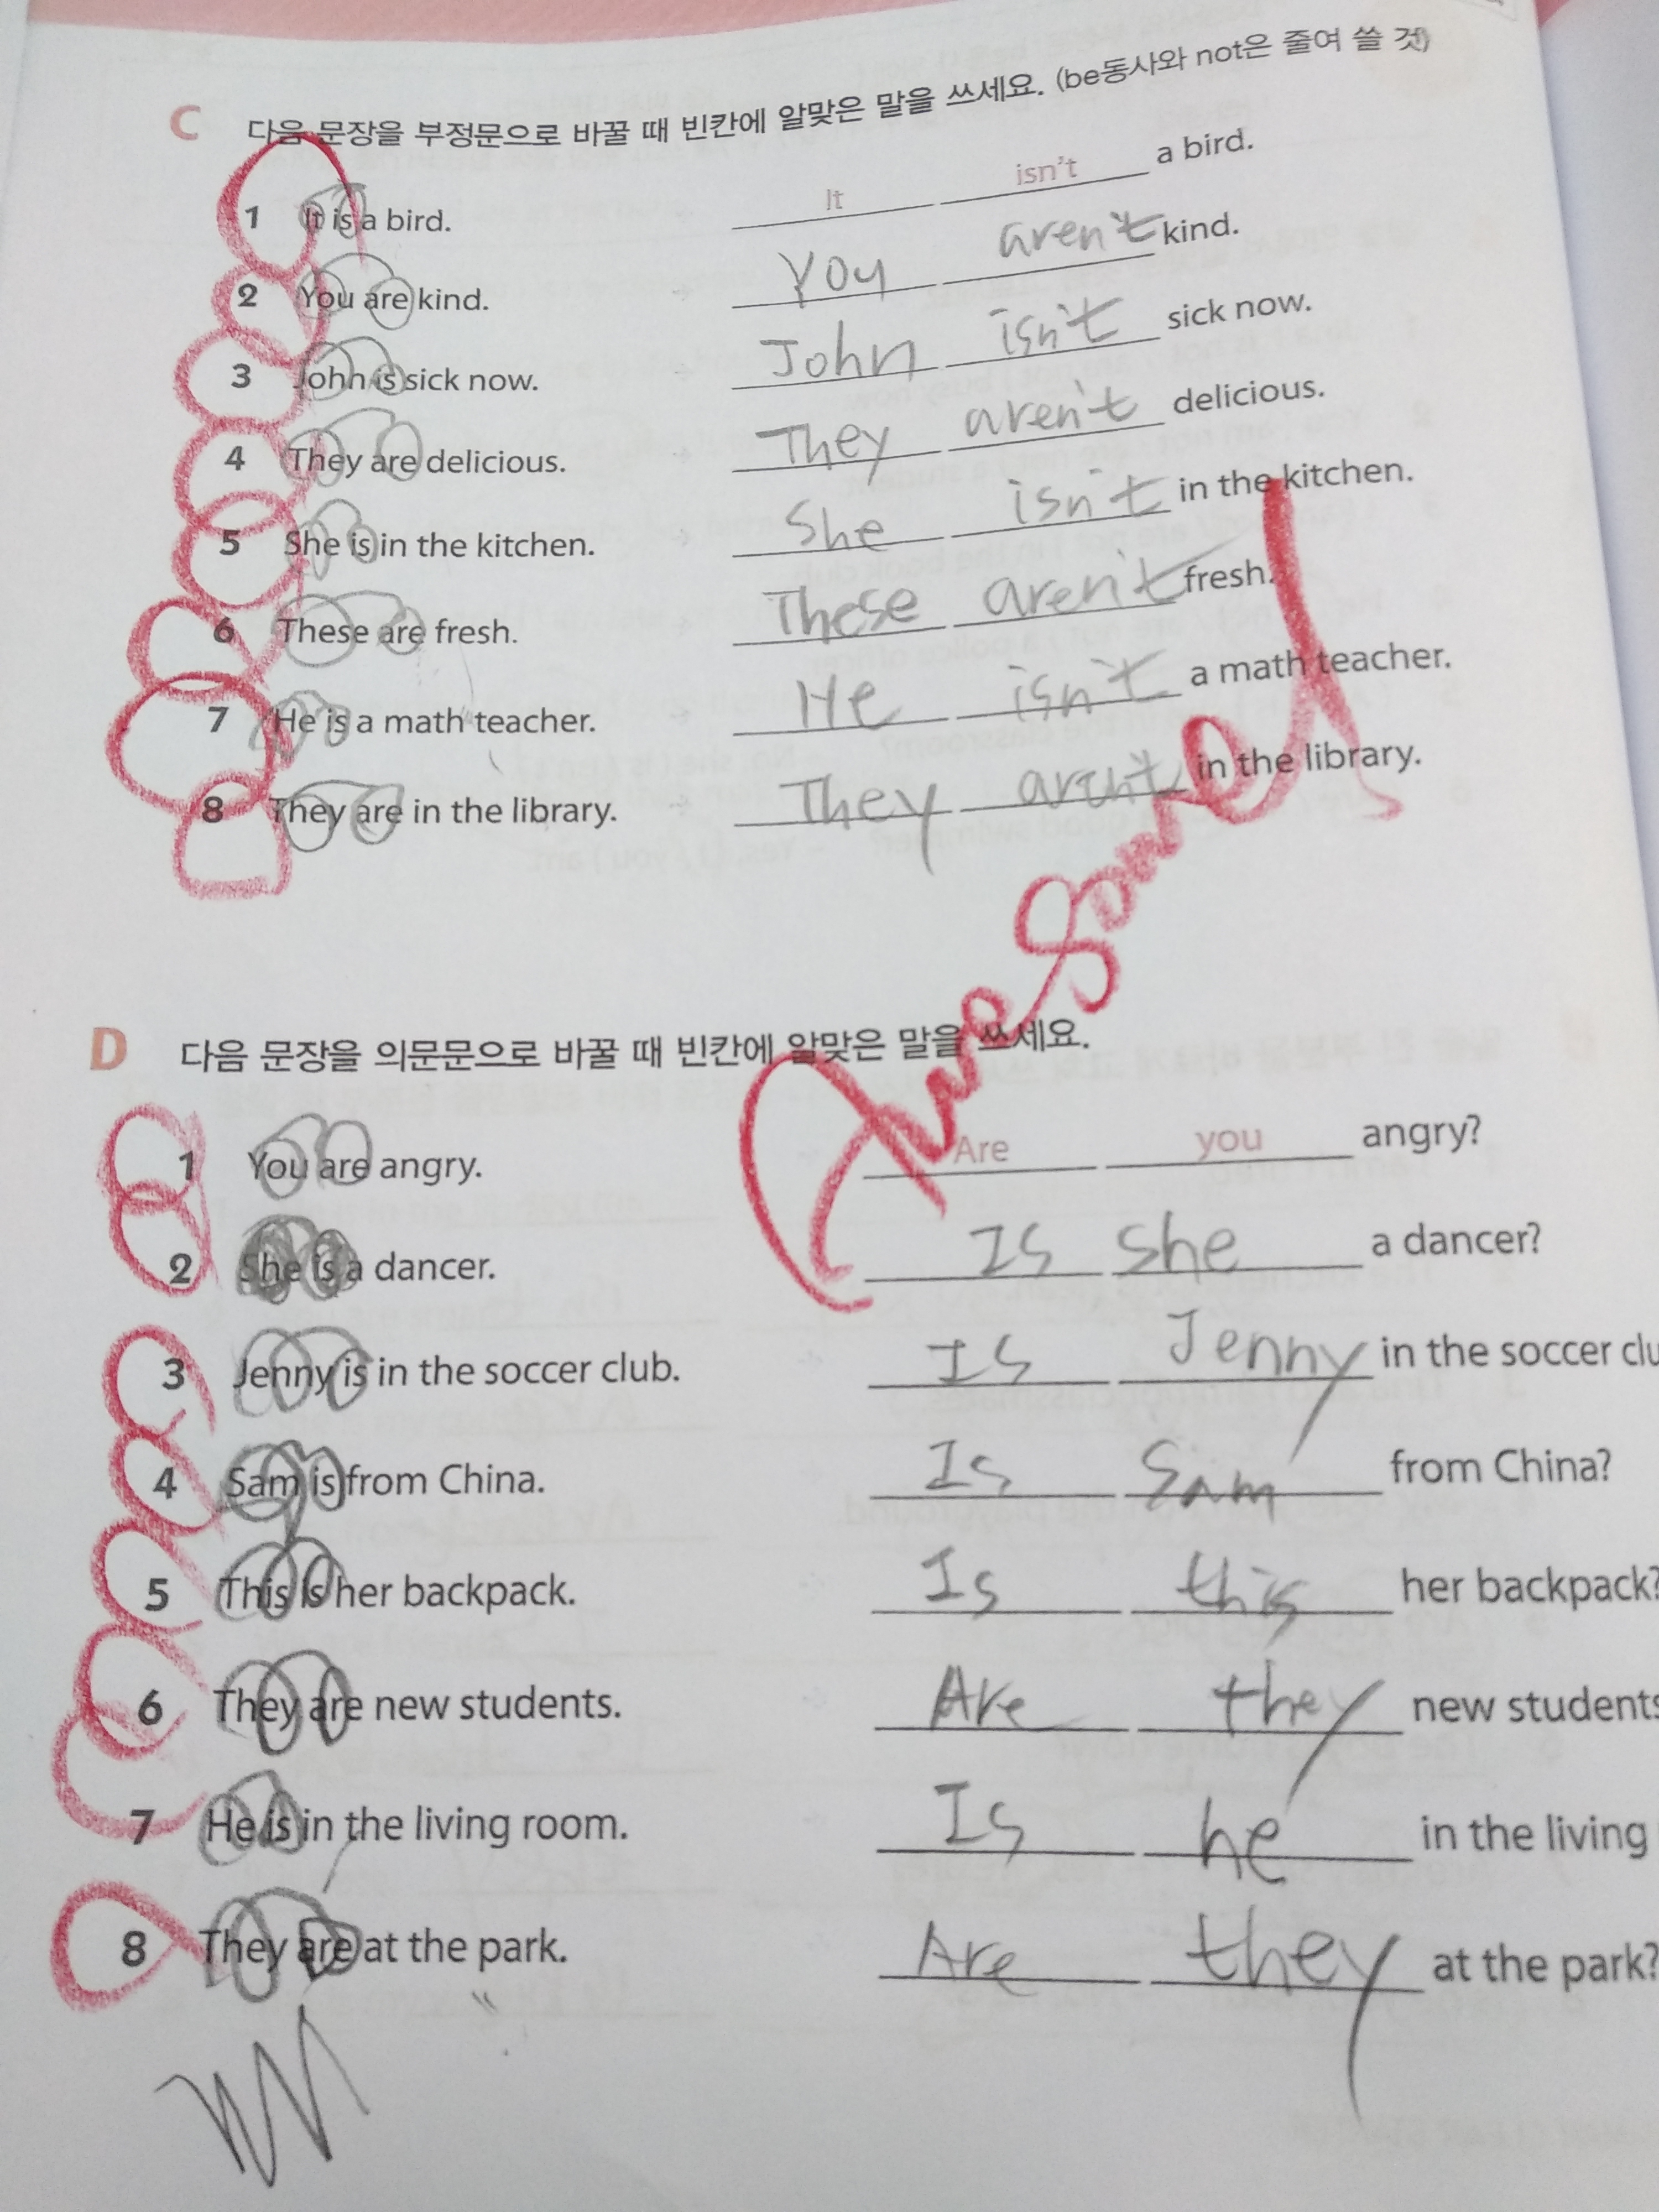 C 다음 문장을 부정문으로 바꿀 때 빈칸에 알맞은 말을 쓰세요. (be동사와 not은 줄여 쓸 것)
1 It is a bird. It isn't a bird.
2 You are kind. You aren't kind.
3 John is sick now. John isn't sick now.
4 They are delicious. They aren't delicious.
5 She is in the kitchen. She isn't in the kitchen.
6 These are fresh. These aren't fresh.
7 He is a math teacher. He isn't a math teacher.
8 They are in the library. They aren't in the library.
Awesome!
D 다음 문장을 의문문으로 바꿀 때 빈칸에 알맞은 말을 쓰세요.
1 You are angry. Are you angry?
2 She is a dancer. Is she a dancer?
3 Jenny is in the soccer club. Is Jenny in the soccer clu
4 Sam is from China. Is Sam from China?
5 This is her backpack. Is this her backpack?
6 They are new students. Are they new students
7 He is in the living room. Is he in the living
8 They are at the park. Are they at the park?